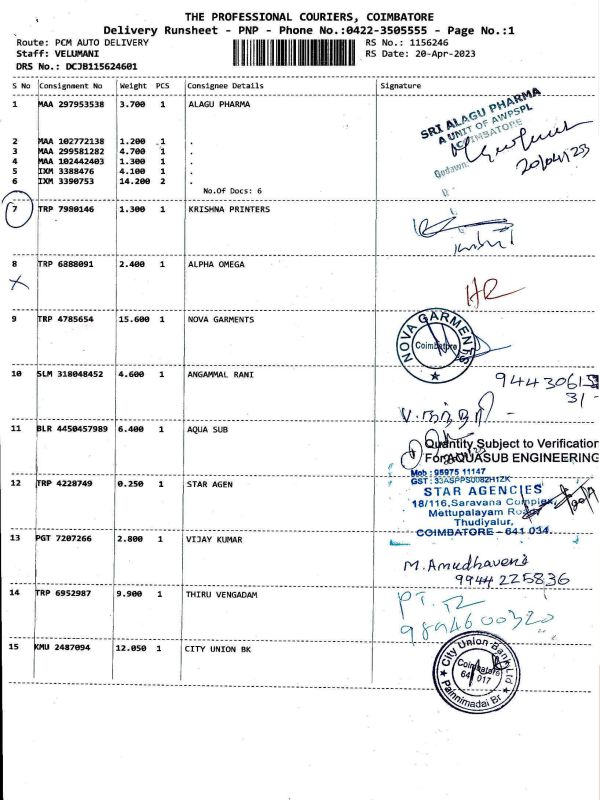 THE PROFESSIONAL COURIERS, COIMBATORE
Delivery Runsheet - PNP - Phone No.:0422-3505555 - Page No.:1
Route: PCM AUTO DELIVERY RS No.: 1156246
Staff: VELUMANI RS Date: 20-Apr-2023
DRS No.: DCJB115624601
S No Consignment No Weight PCS Consignee Details Signature
1 MAA 297953538 3.700 1 ALAGU PHARMA
SRI ALAGU PHARMA
A UNIT OF AWPSPL
COIMBATORE
Godown
2 MAA 102772138 1.200 1 .
3 MAA 299581282 4.700 1 .
4 MAA 102442403 1.300 1 .
5 IXM 3388476 4.100 1 .
6 IXM 3390753 14.200 2 .
No.Of Docs: 6
7 TRP 7980146 1.300 1 KRISHNA PRINTERS
8 TRP 6888091 2.400 1 ALPHA OMEGA
X
HR
9 TRP 4785654 15.600 1 NOVA GARMENTS
NOVA GARMENTS
Coimbatore
10 SLM 318048452 4.600 1 ANGAMMAL RANI
31/-
11 BLR 4450457989 6.400 1 AQUA SUB
Quantity Subject to Verification
For AQUASUB ENGINEERING
Mob : 95975 11147
12 TRP 4228749 0.250 1 STAR AGEN
STAR AGENCIES
18/116,Saravana Complex,
Mettupalayam Road
Thudiyalur,
COIMBATORE - 641 034.
13 PGT 7207266 2.800 1 VIJAY KUMAR
M.Amudhaveni
9944225836
14 TRP 6952987 9.900 1 THIRU VENGADAM
9894600320
15 KMU 2487094 12.050 1 CITY UNION BK
City Union Bank Ltd
Coimbatore
641 017
Pannimadai Br